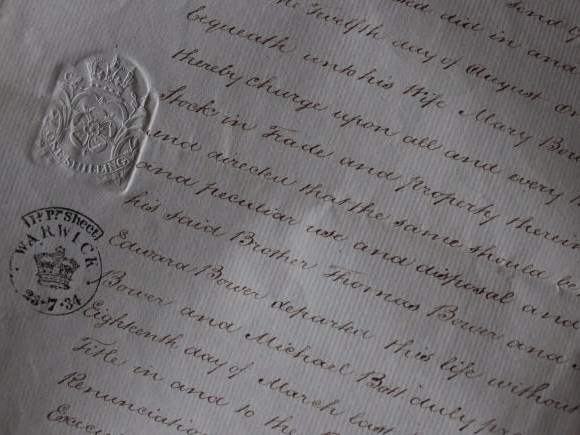 send
did in and
the Twelfth day of August On
bequeath unto his Wife Mary Bow
thereby charge upon all and every
Stock in Trade and property therein
and directed that the same should be
and peculiar use and disposal and
his said Brother Thomas Bower and
Edward Bower departed this life without
Bower and Michael Bott duly pro
Eighteenth day of March last
Title in and to the
Renunciation
Exec
ONE SHILLING
Pr Sheet
WARWICK
23·7·34